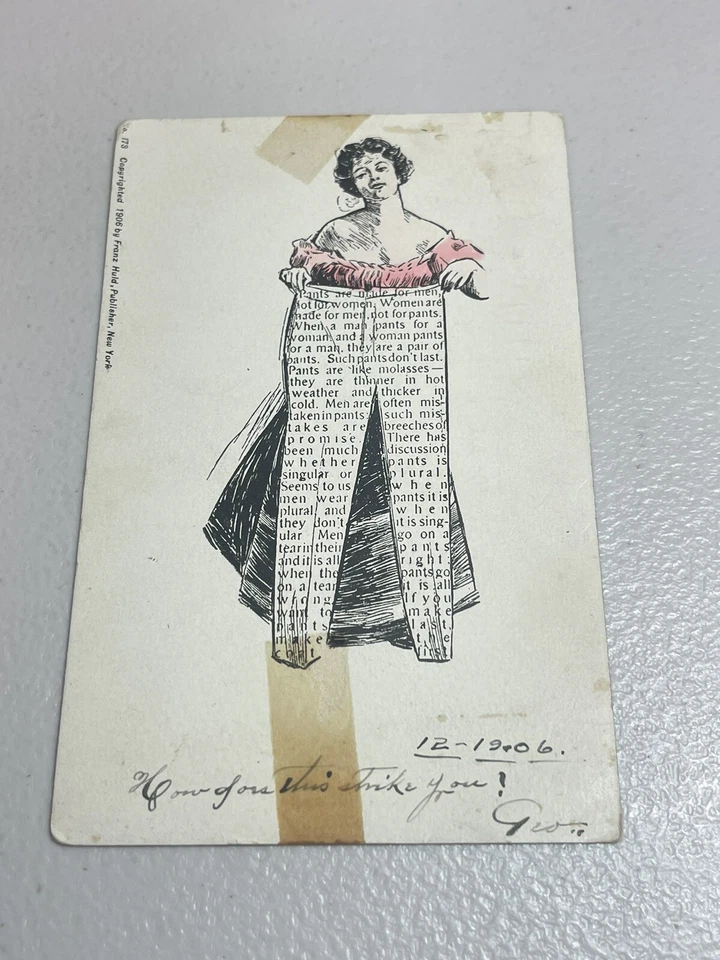 No. 173 Copyrighted 1906 by Franz Huld, Publisher, New York
Pants are made for men,
not for women. Women are
made for men, not for pants.
When a man pants for a
woman and a woman pants
for a man, they are a pair of
pants. Such pants don't last.
Pants are like molasses—
they are thinner in hot
weather and thicker in
cold. Men are often mis-
taken in pants; such mis-
takes are breeches of
promise. There has
been much discussion
whether pants is
singular or plural.
Seems to us when
men wear pants it is
plural, and when
they don't it is sing-
ular. Men go on a
tear in their pants
and it is all right;
when the pants go
on a tear it is all
wrong. If you
want to make
pants last,
make the
coat first
12-1906.
How does this strike you!
Geo.